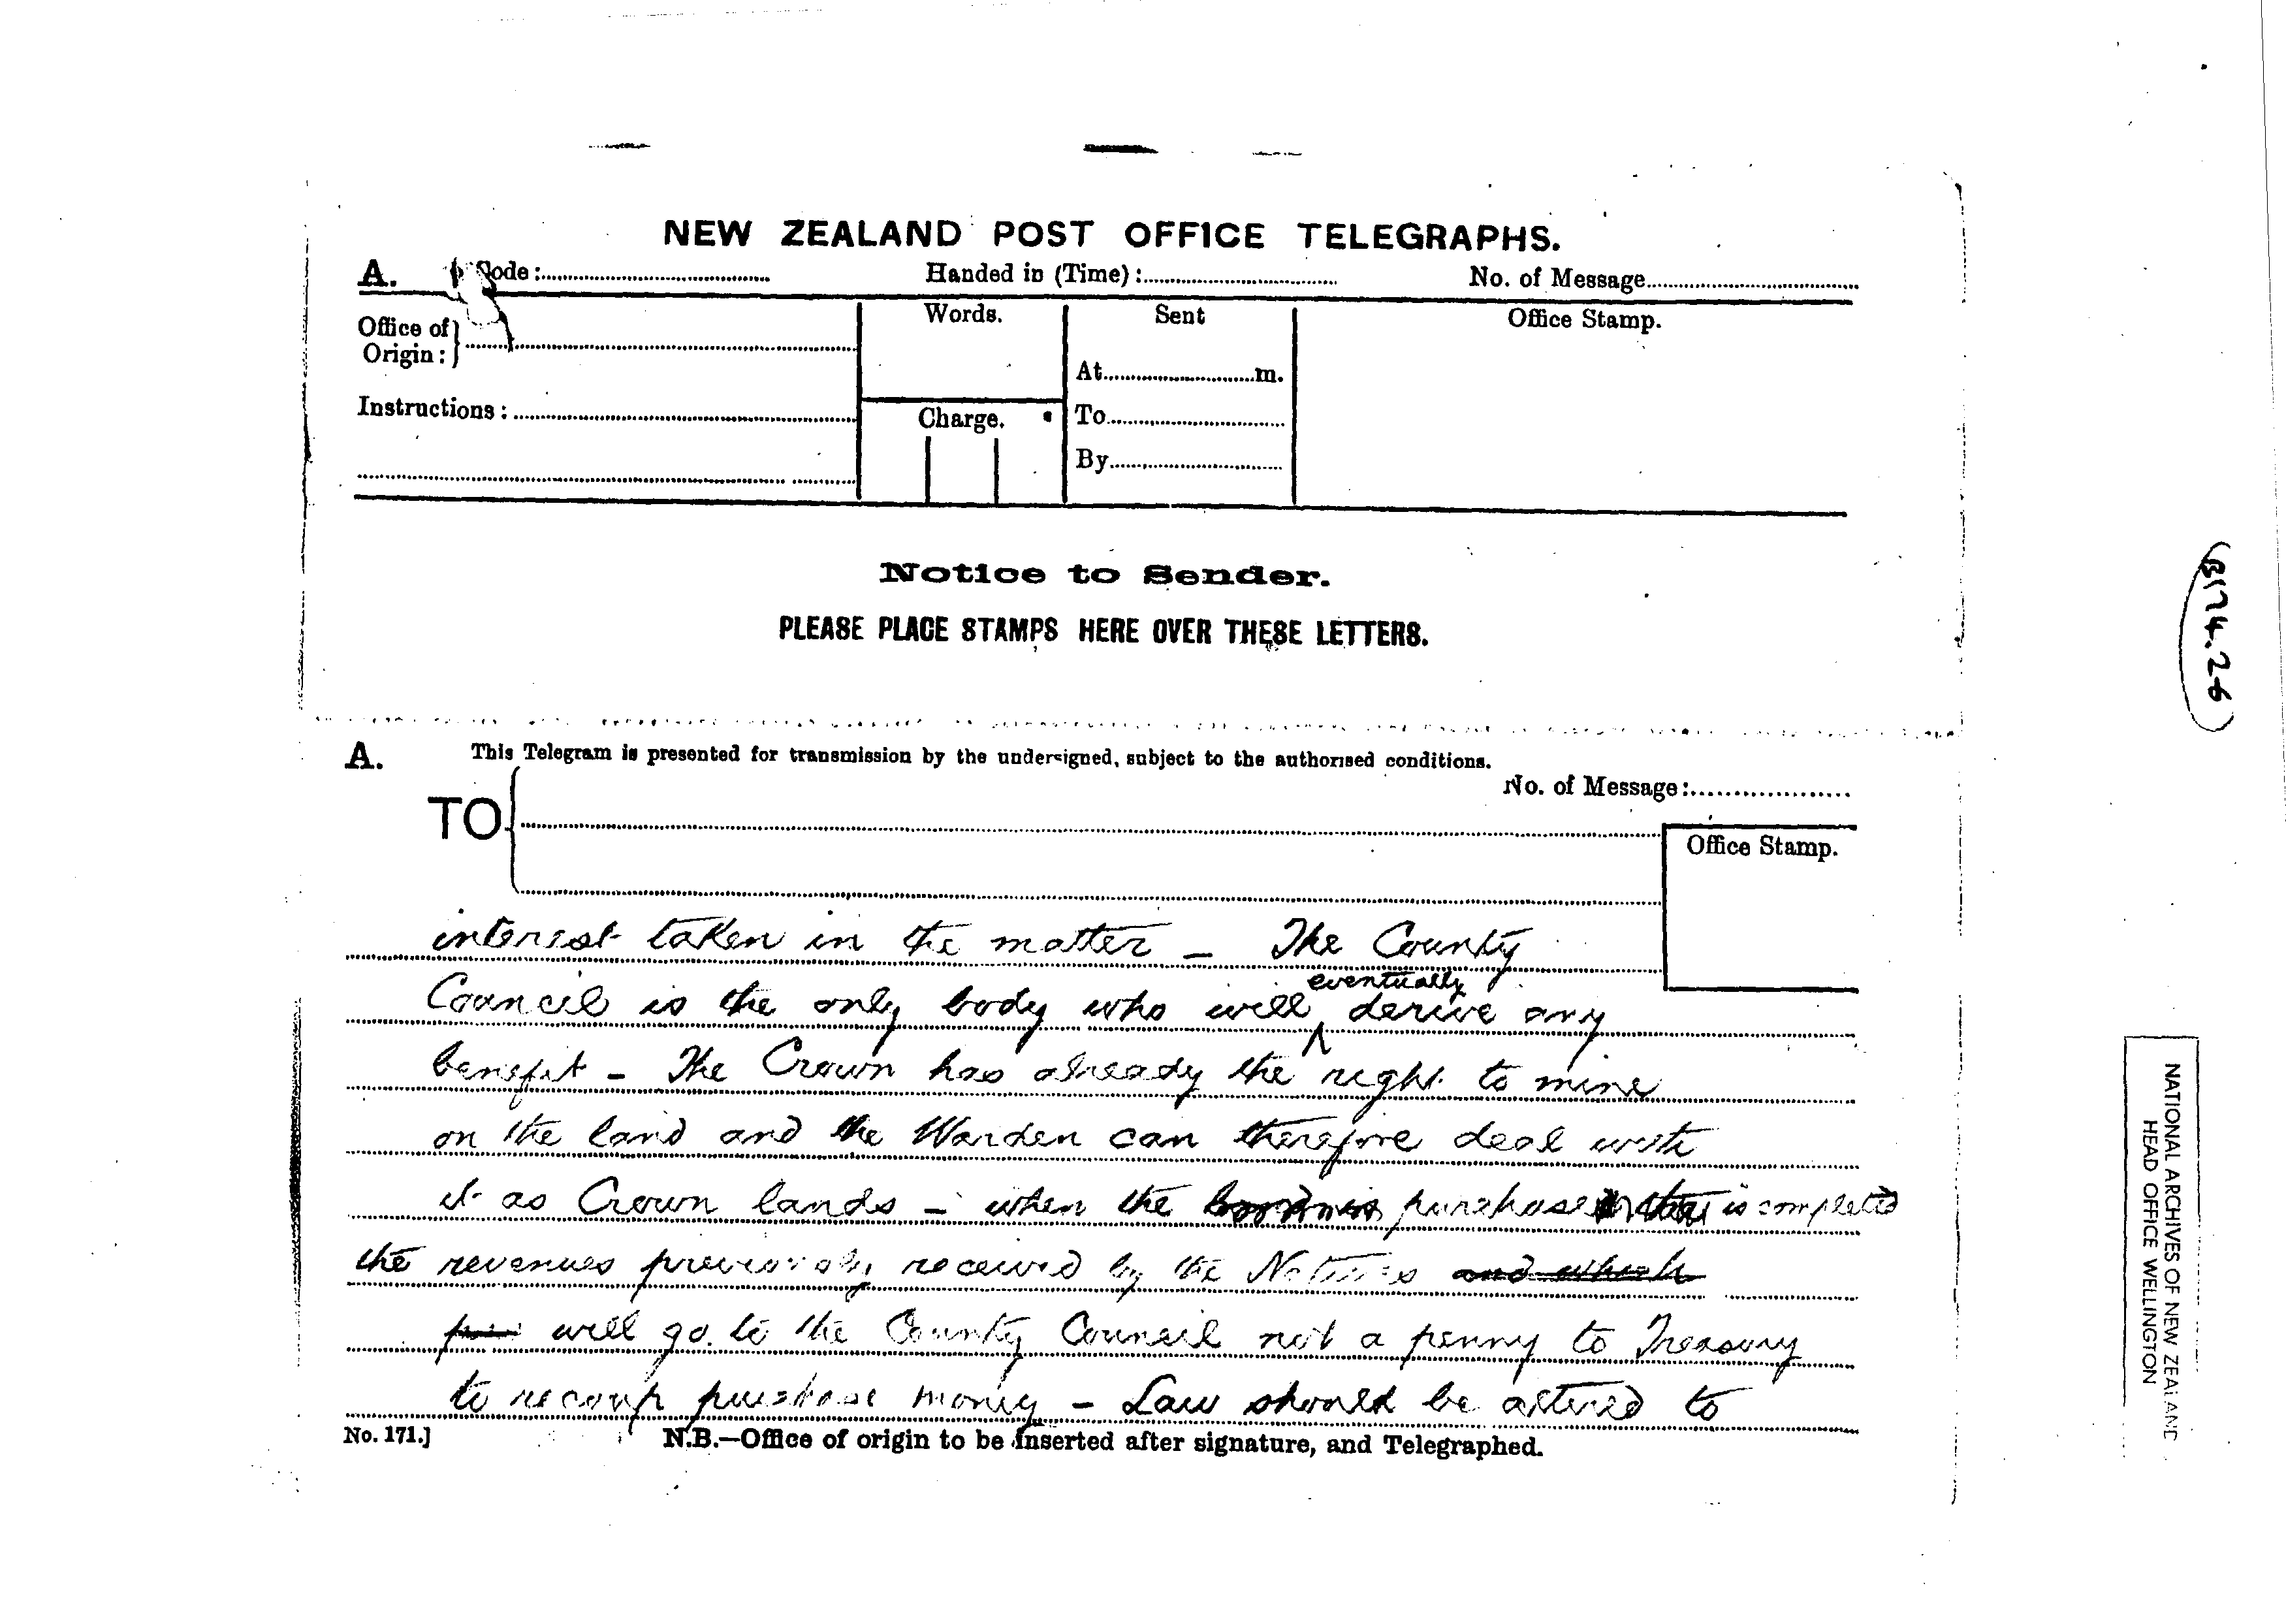 NEW ZEALAND POST OFFICE TELEGRAPHS.
A. Code: Handed in (Time): No. of Message
Office of Origin: Words. Sent Office Stamp.
At m.
Instructions: Charge. To
By
Notice to Sender.
PLEASE PLACE STAMPS HERE OVER THESE LETTERS.
A. This Telegram is presented for transmission by the undersigned, subject to the authorised conditions.
No. of Message:
TO
Office Stamp.
interest taken in the matter – The County
Council is the only body who will eventually derive any
benefit – The Crown has already the right to mine
on the land and the Warden can therefore deal with
it as Crown lands – when the purchase is completed
the revenues previously received by the Natives and which
will go to the County Council not a penny to Treasury
to recoup purchase money – Law should be altered to
No. 171.] N.B.—Office of origin to be inserted after signature, and Telegraphed.
B174.26
NATIONAL ARCHIVES OF NEW ZEALAND
HEAD OFFICE WELLINGTON